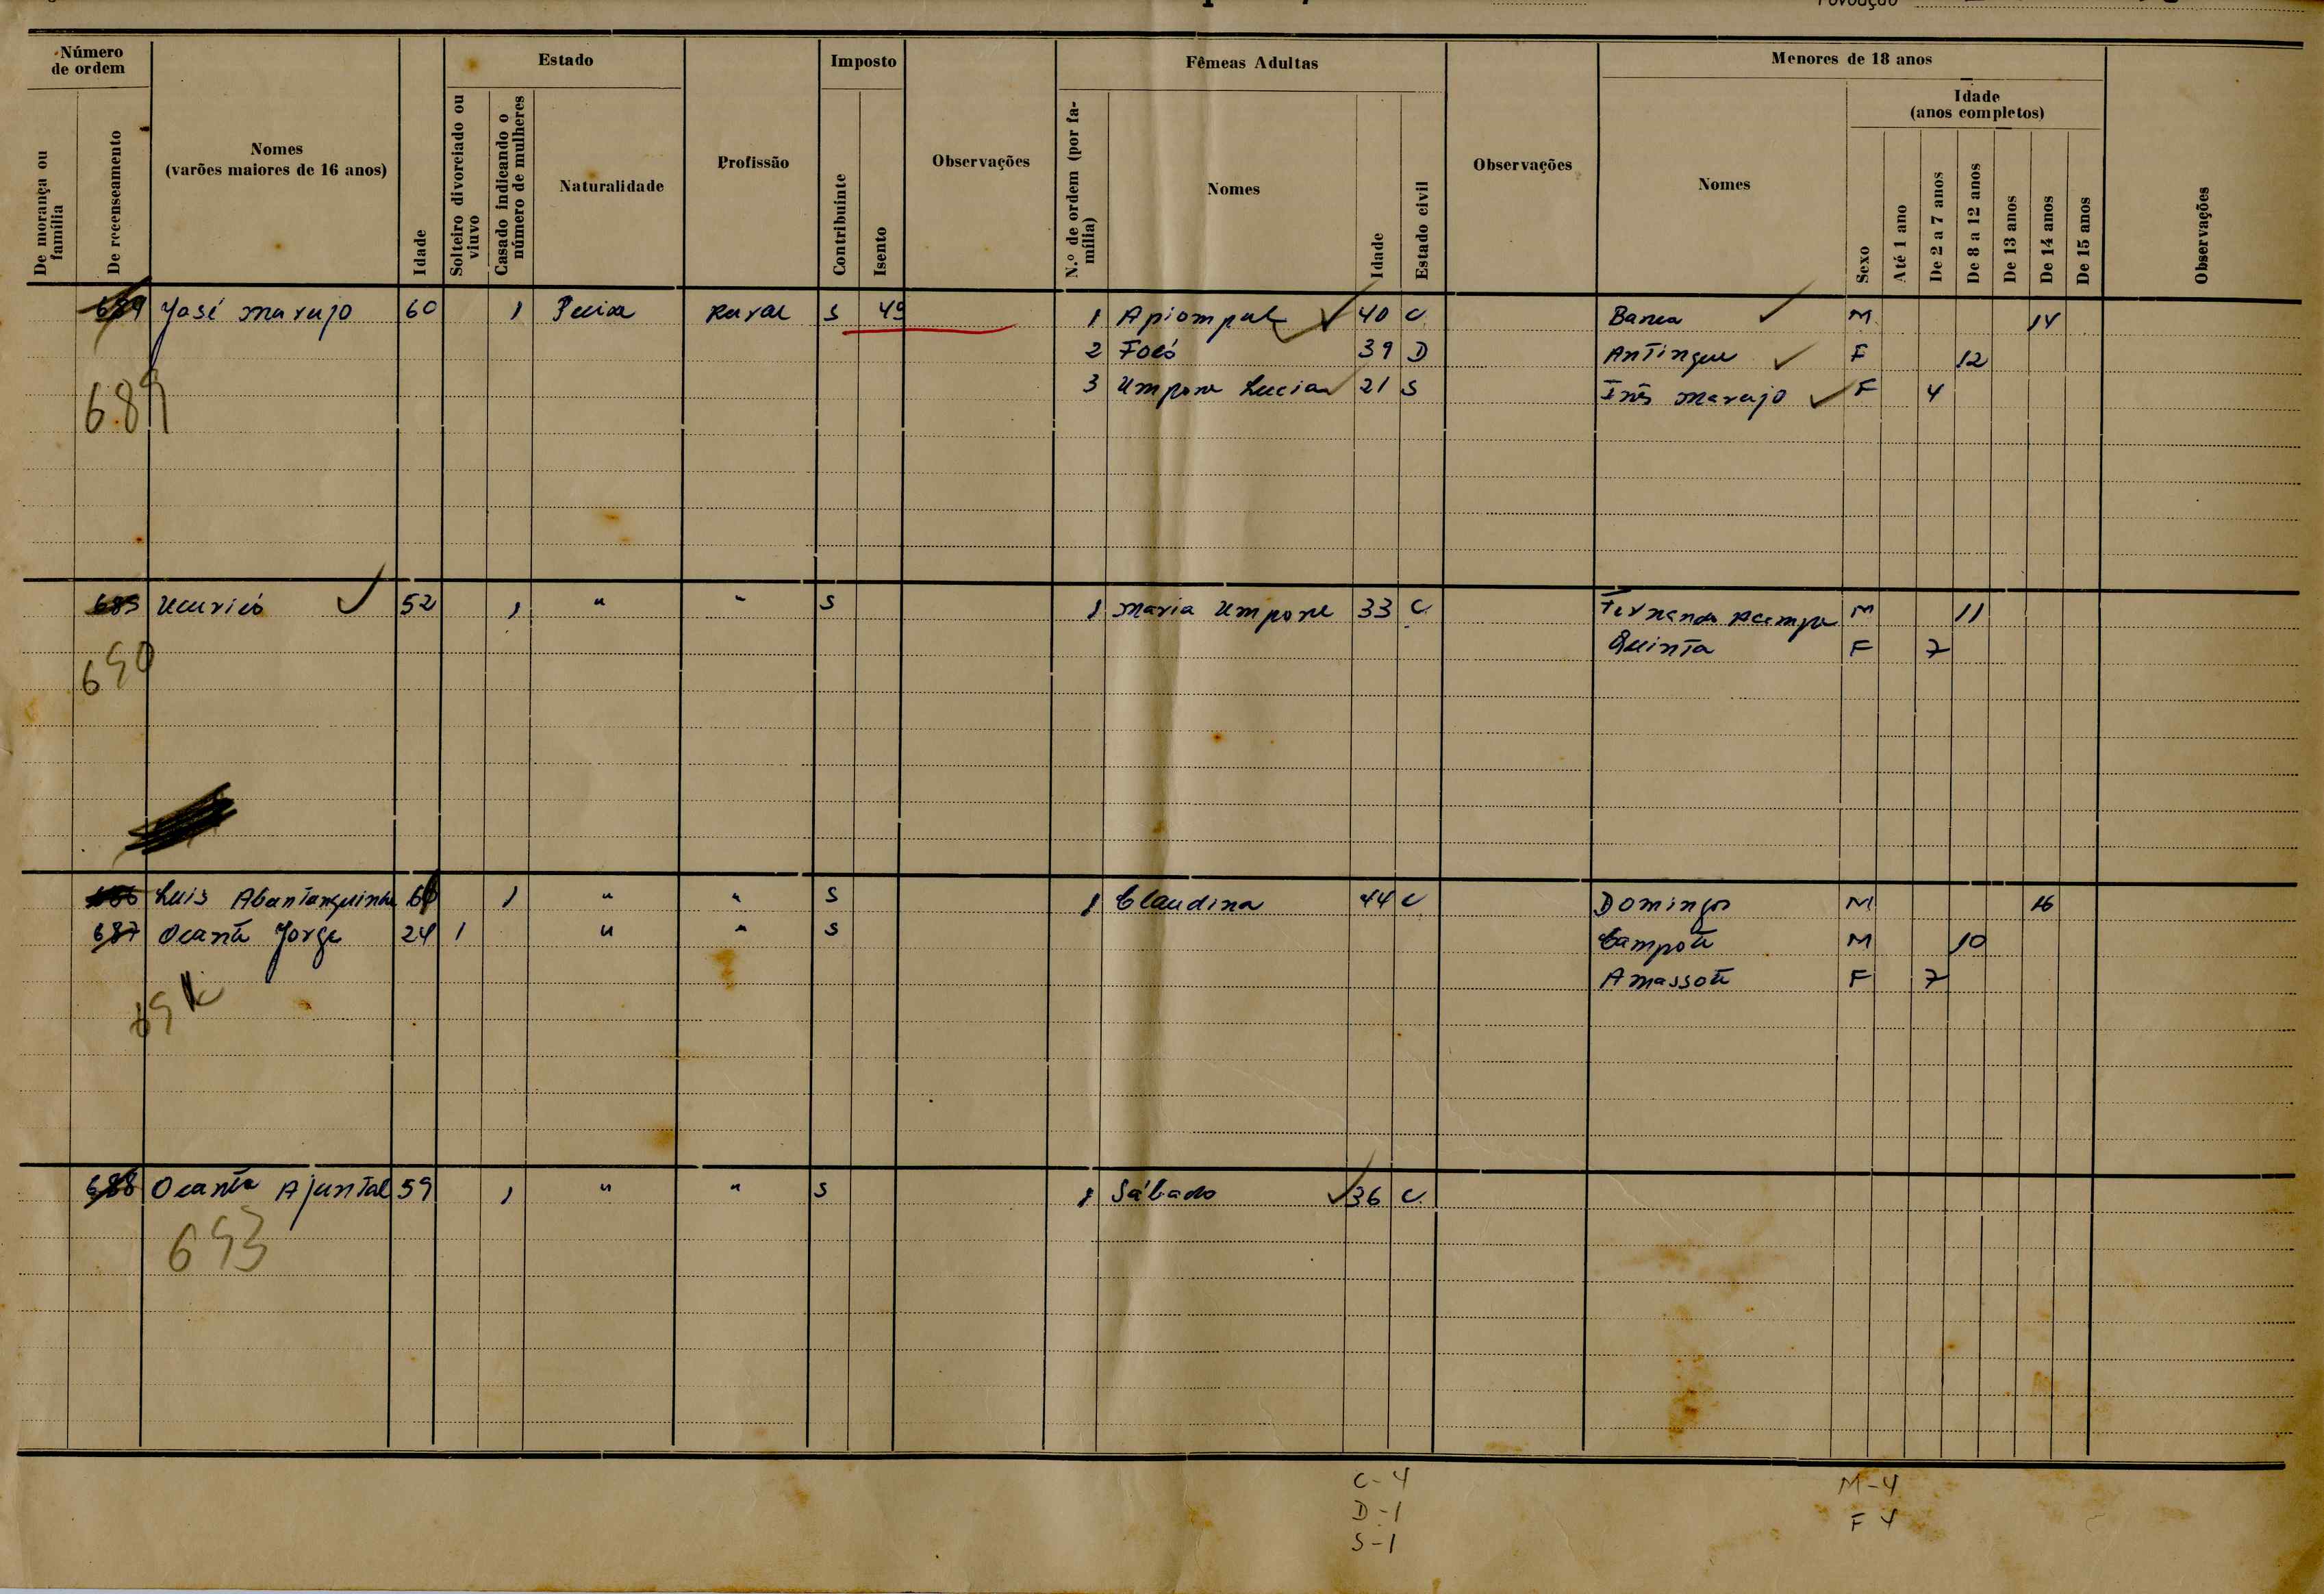 Povoação
Número de ordem
De morança ou família
De recenseamento
Nomes
(varões maiores de 16 anos)
Idade
Estado
Solteiro divorciado ou viuvo
Casado indicando o número de mulheres
Naturalidade
Profissão
Imposto
Contribuinte
Isento
Observações
Fêmeas Adultas
N.º de ordem (por família)
Nomes
Idade
Estado civil
Observações
Menores de 18 anos
Nomes
Sexo
Idade
(anos completos)
Até 1 ano
De 2 a 7 anos
De 8 a 12 anos
De 13 anos
De 14 anos
De 15 anos
Observações
José Marujo 60 1 Rural S 49 1 40 C M 14
2 Focó 39 D Antingue F 12
3 Umpone Lucia 21 S Inês Marujo F 4
689
685 52 1 " " S 1 Maria Umpone 33 C Fernando M 11
Quinta F 7
690
Luis 1 " " S 1 Claudina 44 C Domingos M 16
687 Ocante Jorge 24 1 " " S Campote M 10
Amassote F 7
688 Ocante Ajuntal 59 1 " " S 1 Sábado 36 C
693
C-4
D-1
S-1
M-4
F 4